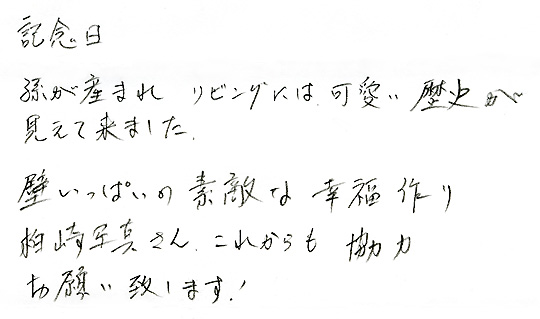 記念日
孫が産まれ リビングには、可愛い歴史が
見えて来ました。
壁いっぱいの素敵な幸福作り
柏崎写真さん、これからも協力
お願い致します！